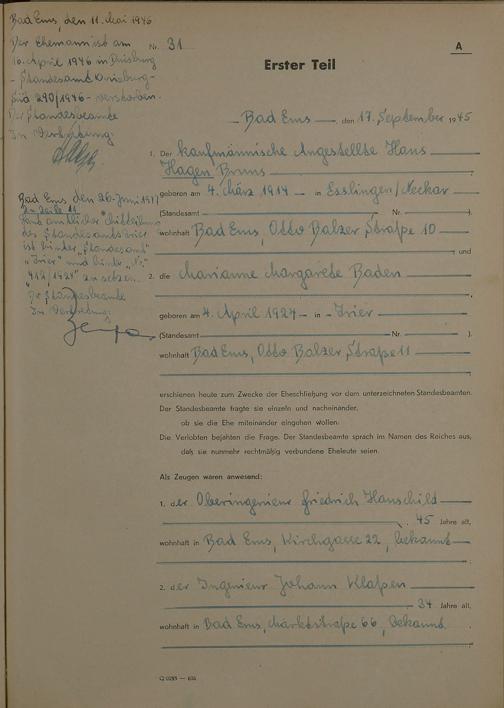 Bad Ems, den 11. Mai 1946
Der Ehemann ist am
10. April 1946 in Duisburg
- Standesamt Duisburg-
290/1946 - verstorben.
Der Standesbeamte
In Vertretung:
Bad Ems, den 26. Juni 19
Zu Zeile 11
Laut amtlicher Mitteilung
des Standesamts Trier
ist hinter "Standesamt"
"Trier" und hinter "Nr."
"412/1924" zu setzen.
Der Standesbeamte
In Vertretung:
A
Nr. 31
Erster Teil
Bad Ems, den 17. September 1945
1. Der kaufmännische Angestellte Hans
Hagen Bruns
geboren am 4. März 1914 in Esslingen/Neckar
(Standesamt Nr. ).
wohnhaft Bad Ems, Otto Balzer Straße 10
und
2. die Marianne Margarete Baden
geboren am 4. April 1924 in - Trier
(Standesamt Nr. ).
wohnhaft Bad Ems, Otto Balzer Straße 11
erschienen heute zum Zwecke der Eheschließung vor dem unterzeichneten Standesbeamten.
Der Standesbeamte fragte sie einzeln und nacheinander,
ob sie die Ehe miteinander eingehen wollen.
Die Verlobten bejahten die Frage. Der Standesbeamte sprach im Namen des Reiches aus,
daß sie nunmehr rechtmäßig verbundene Eheleute seien.
Als Zeugen waren anwesend:
1. der Oberingenieur Friedrich Hanschild
45 Jahre alt,
wohnhaft in Bad Ems, Kirchgasse 22, bekannt
2. der Ingenieur Johann Klaßen
34 Jahre alt,
wohnhaft in Bad Ems, Marktstraße 66, bekannt